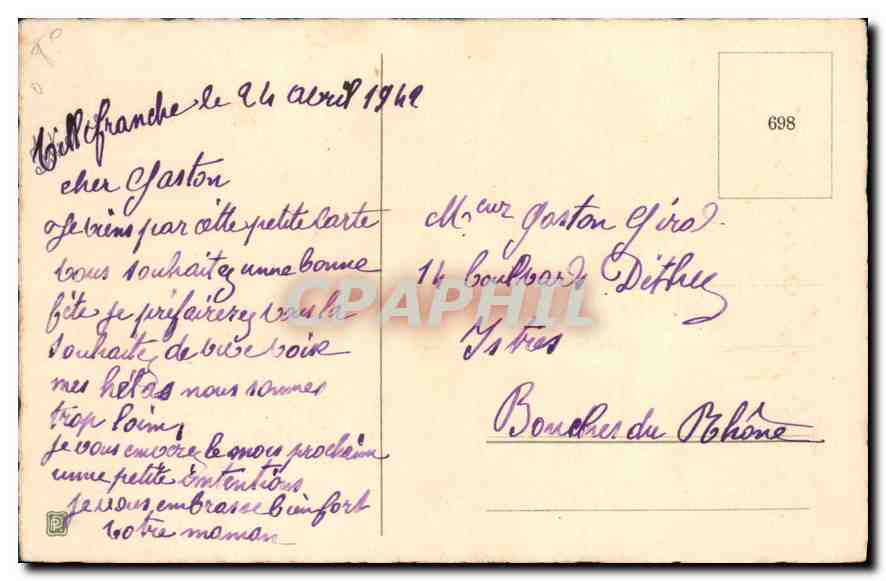 Villefranche le 24 avril 1942
cher Gaston
Je viens par cette petite carte
vous souhaitez unne bonne
fête je préfairerez vous la
souhaitez de vive voix
mes hélas nous sommes
trop loim,
je vous envoirez le mois prochaim
unne petite intentions
je vous embrasse bien fort
votre maman
698
Mr cur Gaston Girod
14 boulvards
Istres
Bouches du Rhône
CPAPHIL